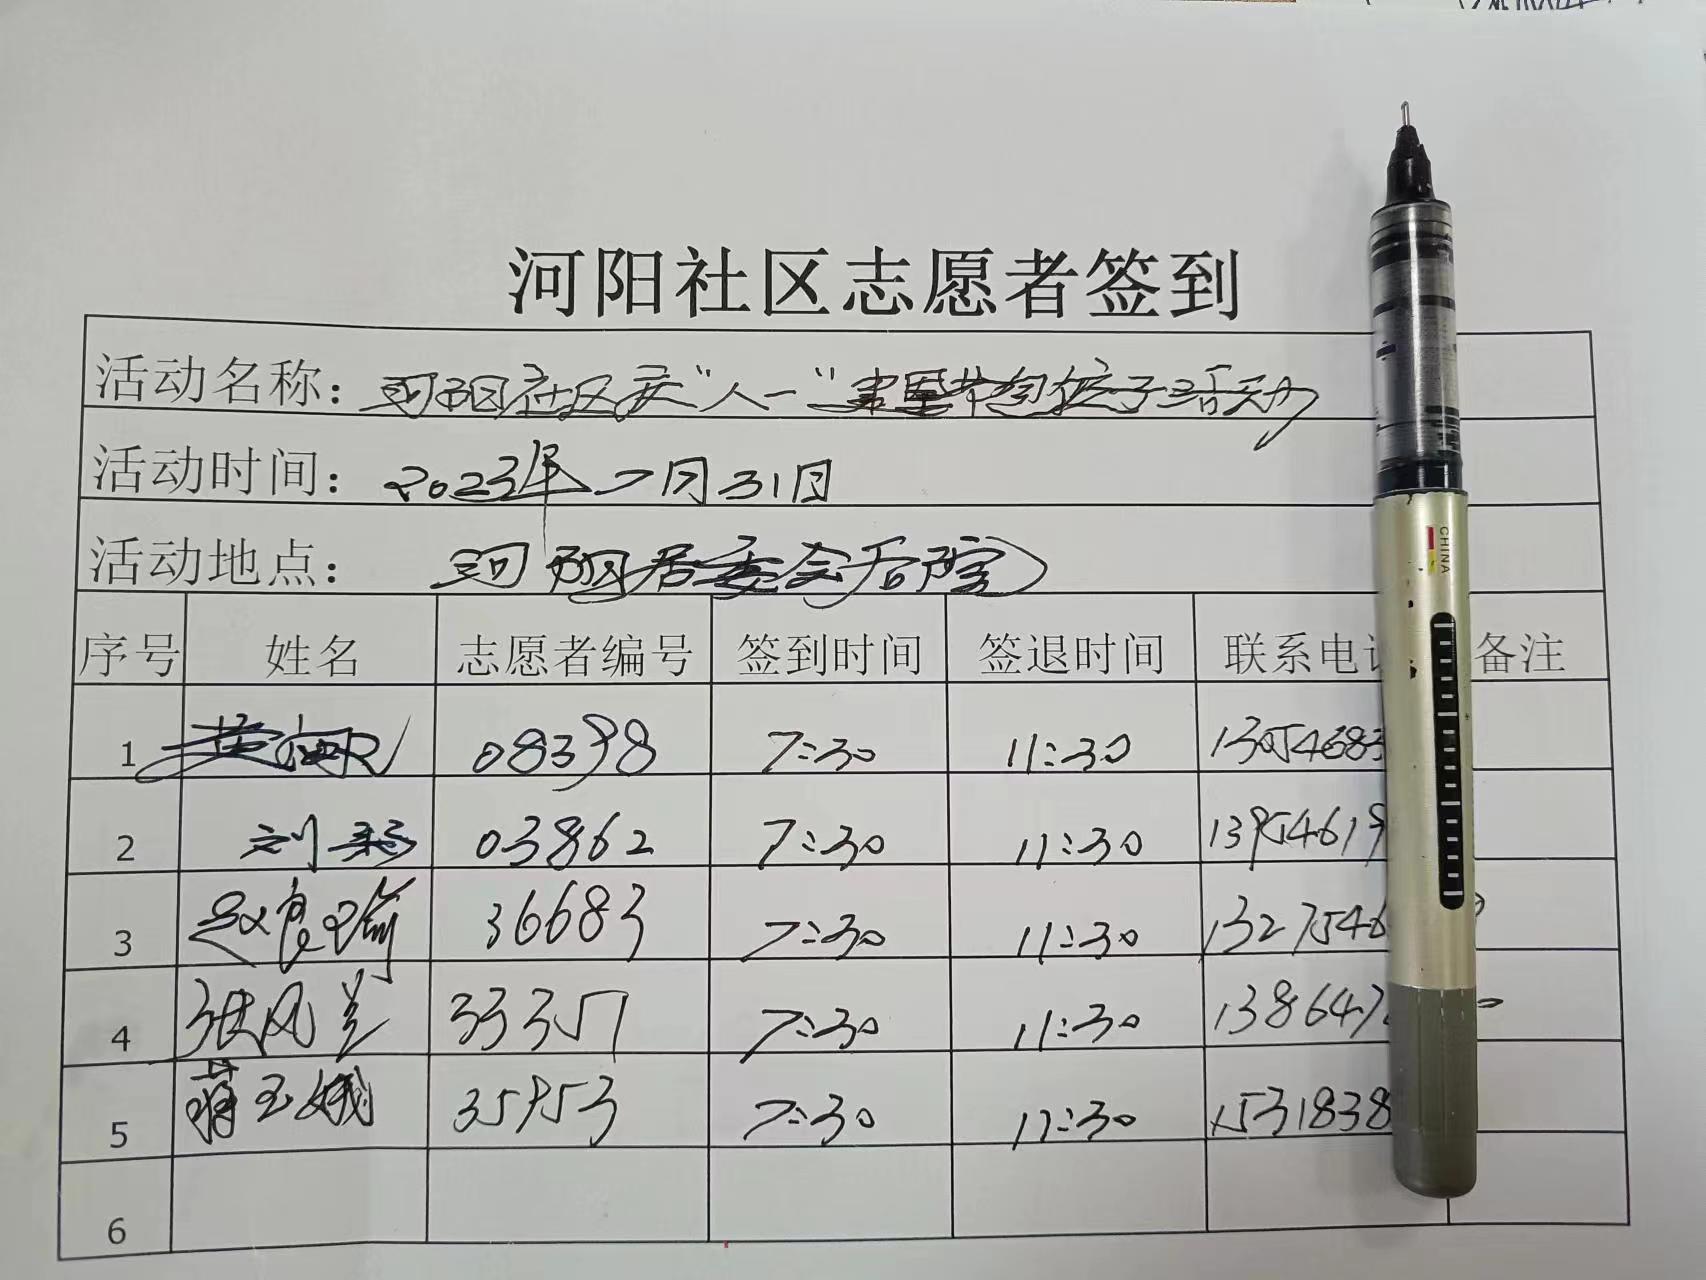 河阳社区志愿者签到
活动名称：河阳社区庆"八一"建军节包饺子活动
活动时间：2023年7月31日
活动地点：河阳居委会后院
序号 姓名 志愿者编号 签到时间 签退时间 联系电 备注
1 08398 7:30 11:30 13054683
2 刘 03862 7:30 11:30 13954619
3 赵俊瑜 36683 7:30 11:30 1327546
4 张风兰 33357 7:30 11:30 138647
5 蒋玉娥 35953 7:30 11:30 1531838
6
CHINA